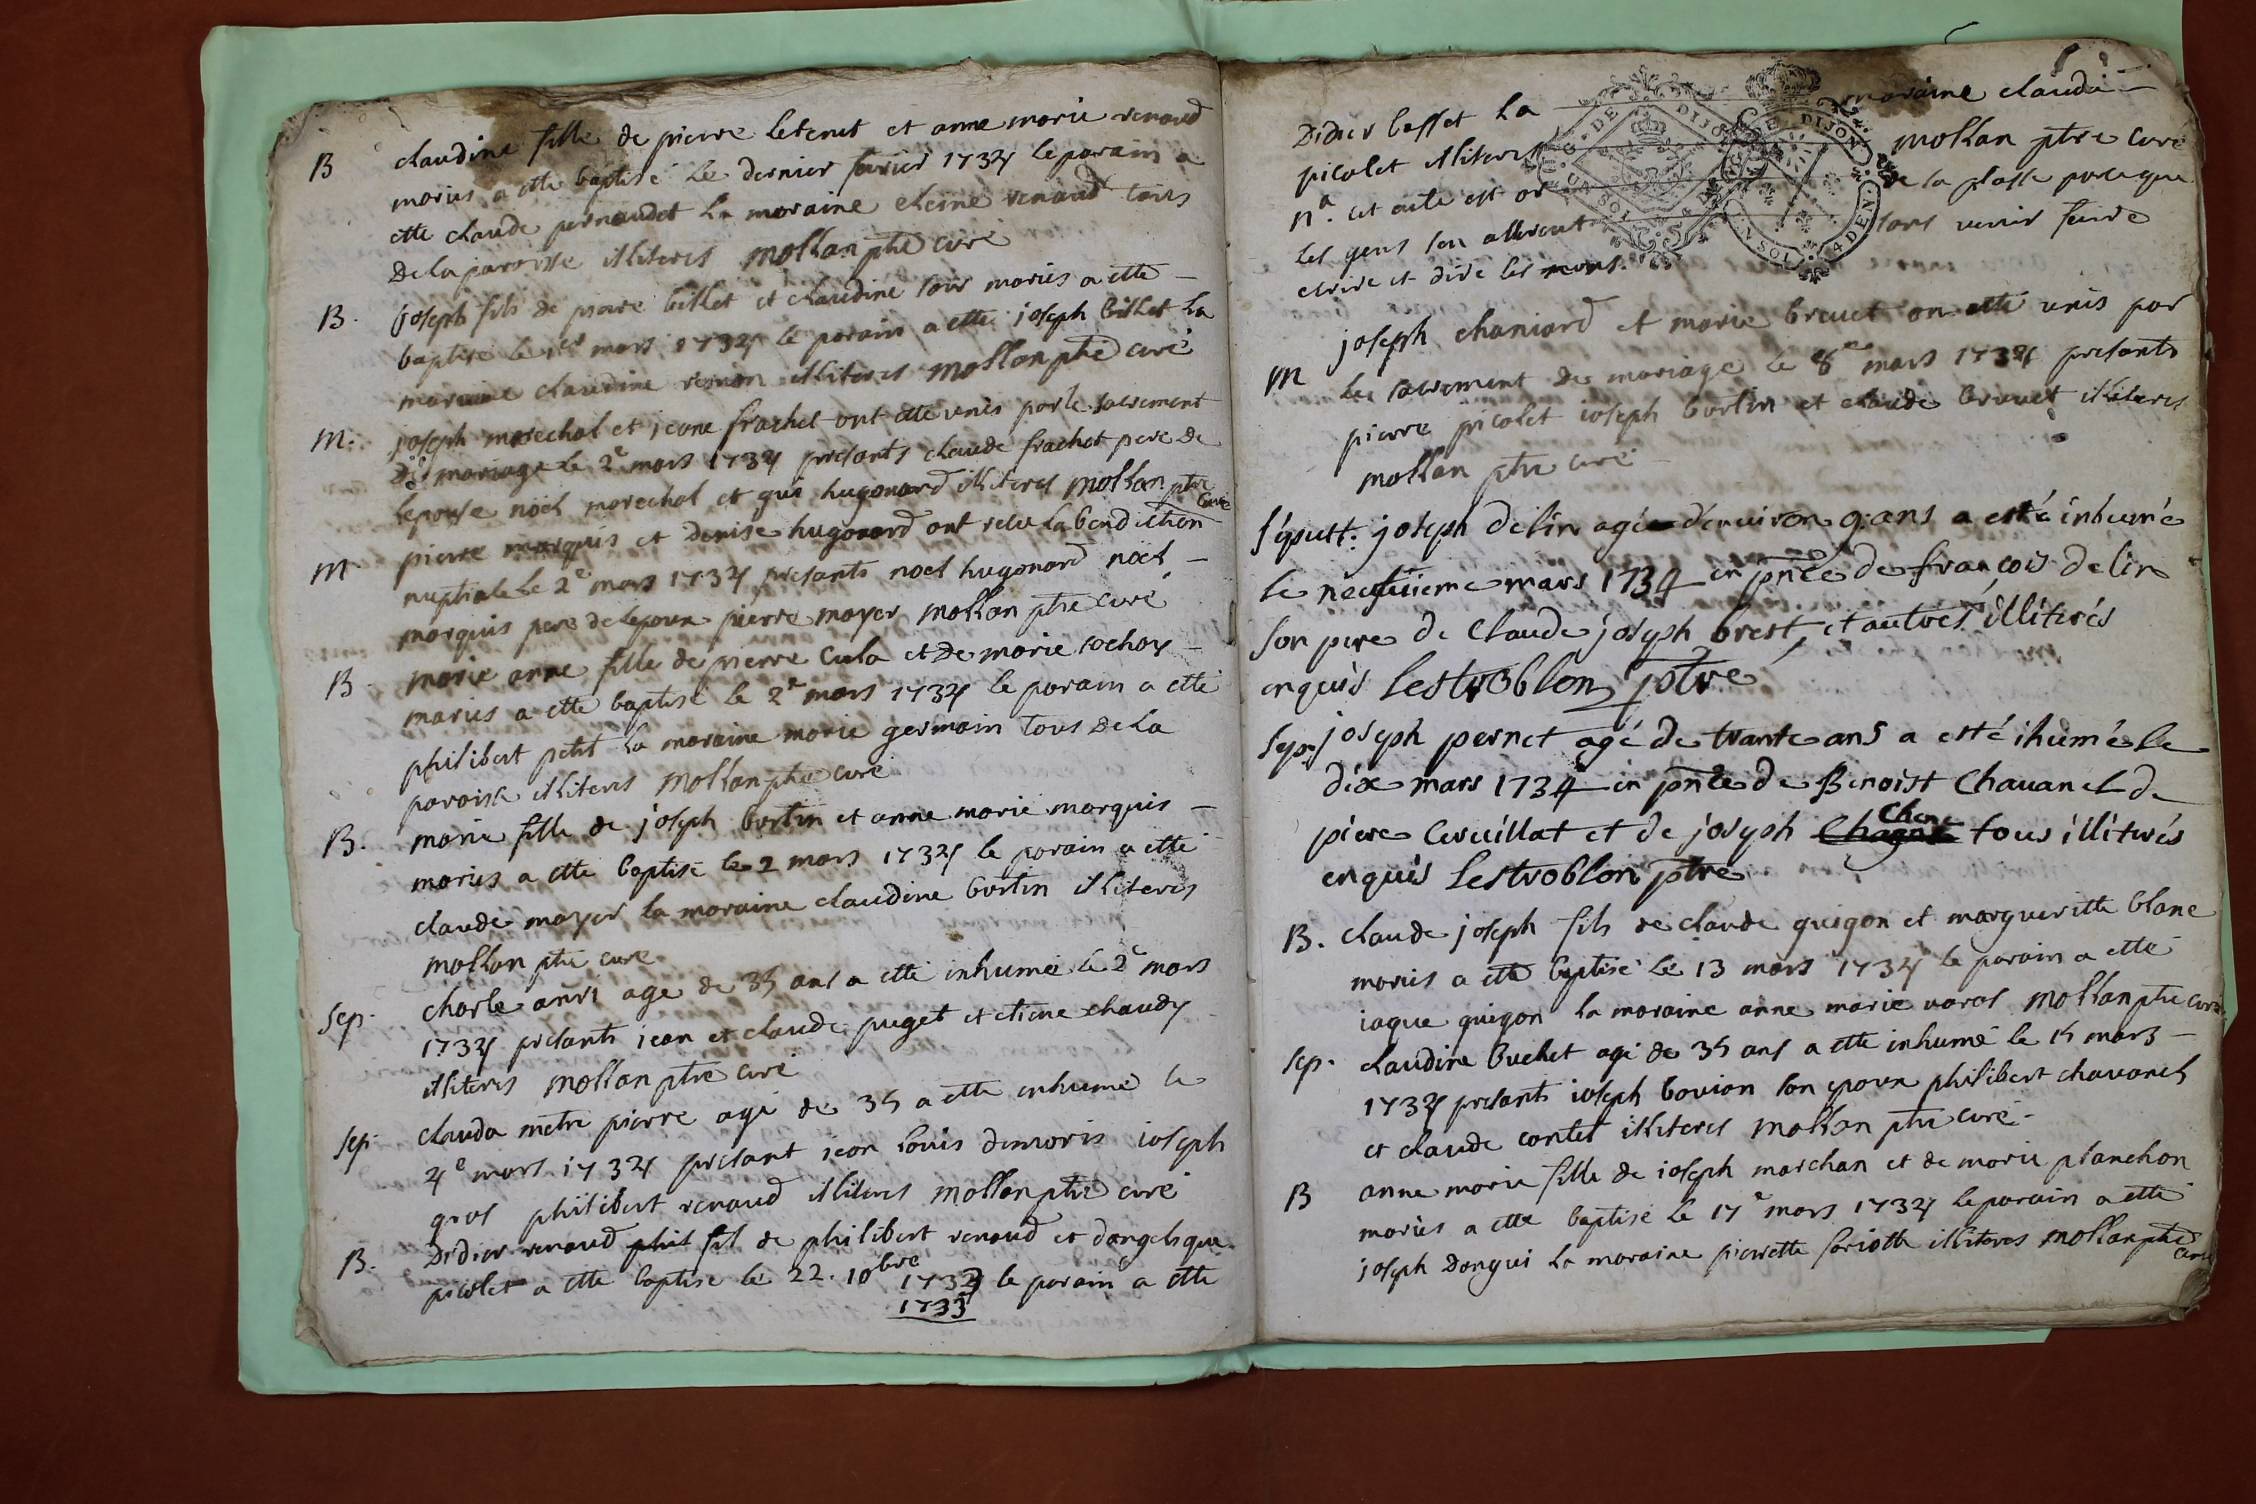 B claudine fille de pierre letenet et anne marie renaud
mariés a etté baptisé le dernier fevrier 1734 le parain a
etté claude pernaudet la maraine eleine renaud tous
de la paroisse illiteres mollan ptre curé
B. joseph fils de piere billet et claudine mariés a etté
baptisé le 1er mars 1734 le parain a etté joseph billet la
maraine claudine illiteres mollan ptre curé
M. joseph marechal et jeane frachet ont etté unis par le sacrement
de mariage le 2e mars 1734 presants claude frachet pere de
lepouse nöel marechal et gui hugonard illiteres mollan ptre
curé
M pierre marquis et denise hugonard ont recu la bendiction
nuptiale le 2e mars 1734 presants noel hugonard nöel
marquis pere de lepoux pierre mayer mollan ptre curé
B marie anne fille de pierre cula et de marie cochoy
mariés a etté baptisé le 2e mars 1734 le parain a etté
philibert petit la maraine marie germain tous de la
paroisse illiteres mollan ptre curé
B. marie fille de joseph bortin et anne marie marquis
mariés a etté baptisé le 2 mars 1734 le parain a etté
claude mayer la maraine claudine bortin illiteres
mollan ptre curé
Sep. charle anri agé de 35 ans a etté inhumé le 2e mars
1734 presants jean et claude puget et etiene chaudy
illiteres mollan ptre curé
Sep. clauda metre pierre agé de 35 a etté inhumé le
4e mars 1734 presant jean louis demoris ioseph
gros philibert renaud illiteres mollan ptre curé
B. Didier renaud phil fil de philibert renaud et dangelique
picolet a etté baptisé le 22. 10bre 1733 le parain a etté
1733
Didier bosset la maraine claudi
picolet illiteres mollan ptre curé
na. cet acte est or de sa plasse parceque
les gens sen allerent sans venir faire
ecrire et dire les noms.
M joseph chaniard et marie brevet on etté unis par
le sacrement de mariage le 8e mars 1734 presants
pierre picolet ioseph bortin et claude brevet illiteres
mollan ptre curé
Sépult: joseph delin agé denviron 9: ans a esté inhumé
le neufuieme mars 1734 in pñce de françois delin
son pere de Claude joseph brest, et autres illiterés
enquis Lestroblon ptre
Sep: joseph pernet agé de trante ans a esté ihumé le
dix mars 1734 in pñce de Benoist Chavanel de
piere Cervillat et de joseph Chene tous illiterés
enquis Lestroblon ptre
B. claude joseph fils de claude guigon et margueritte blanc
mariés a etté baptisé le 13 mars 1734 le parain a etté
iaque guigon la maraine anne marie varos mollan ptre curé
Sep. claudine buchet agé de 35 ans a etté inhumé le 15 mars
1734 presants ioseph bovion son epoux philibert chavanel
et claude contet illiteres mollan ptre curé
B anne marie fille de ioseph marchan et de marie planchon
mariés a etté baptisé le 17e mars 1734 le parain a etté
joseph dongui la maraine pierrette illiteres mollan ptre
curé
DIJON
DIJON